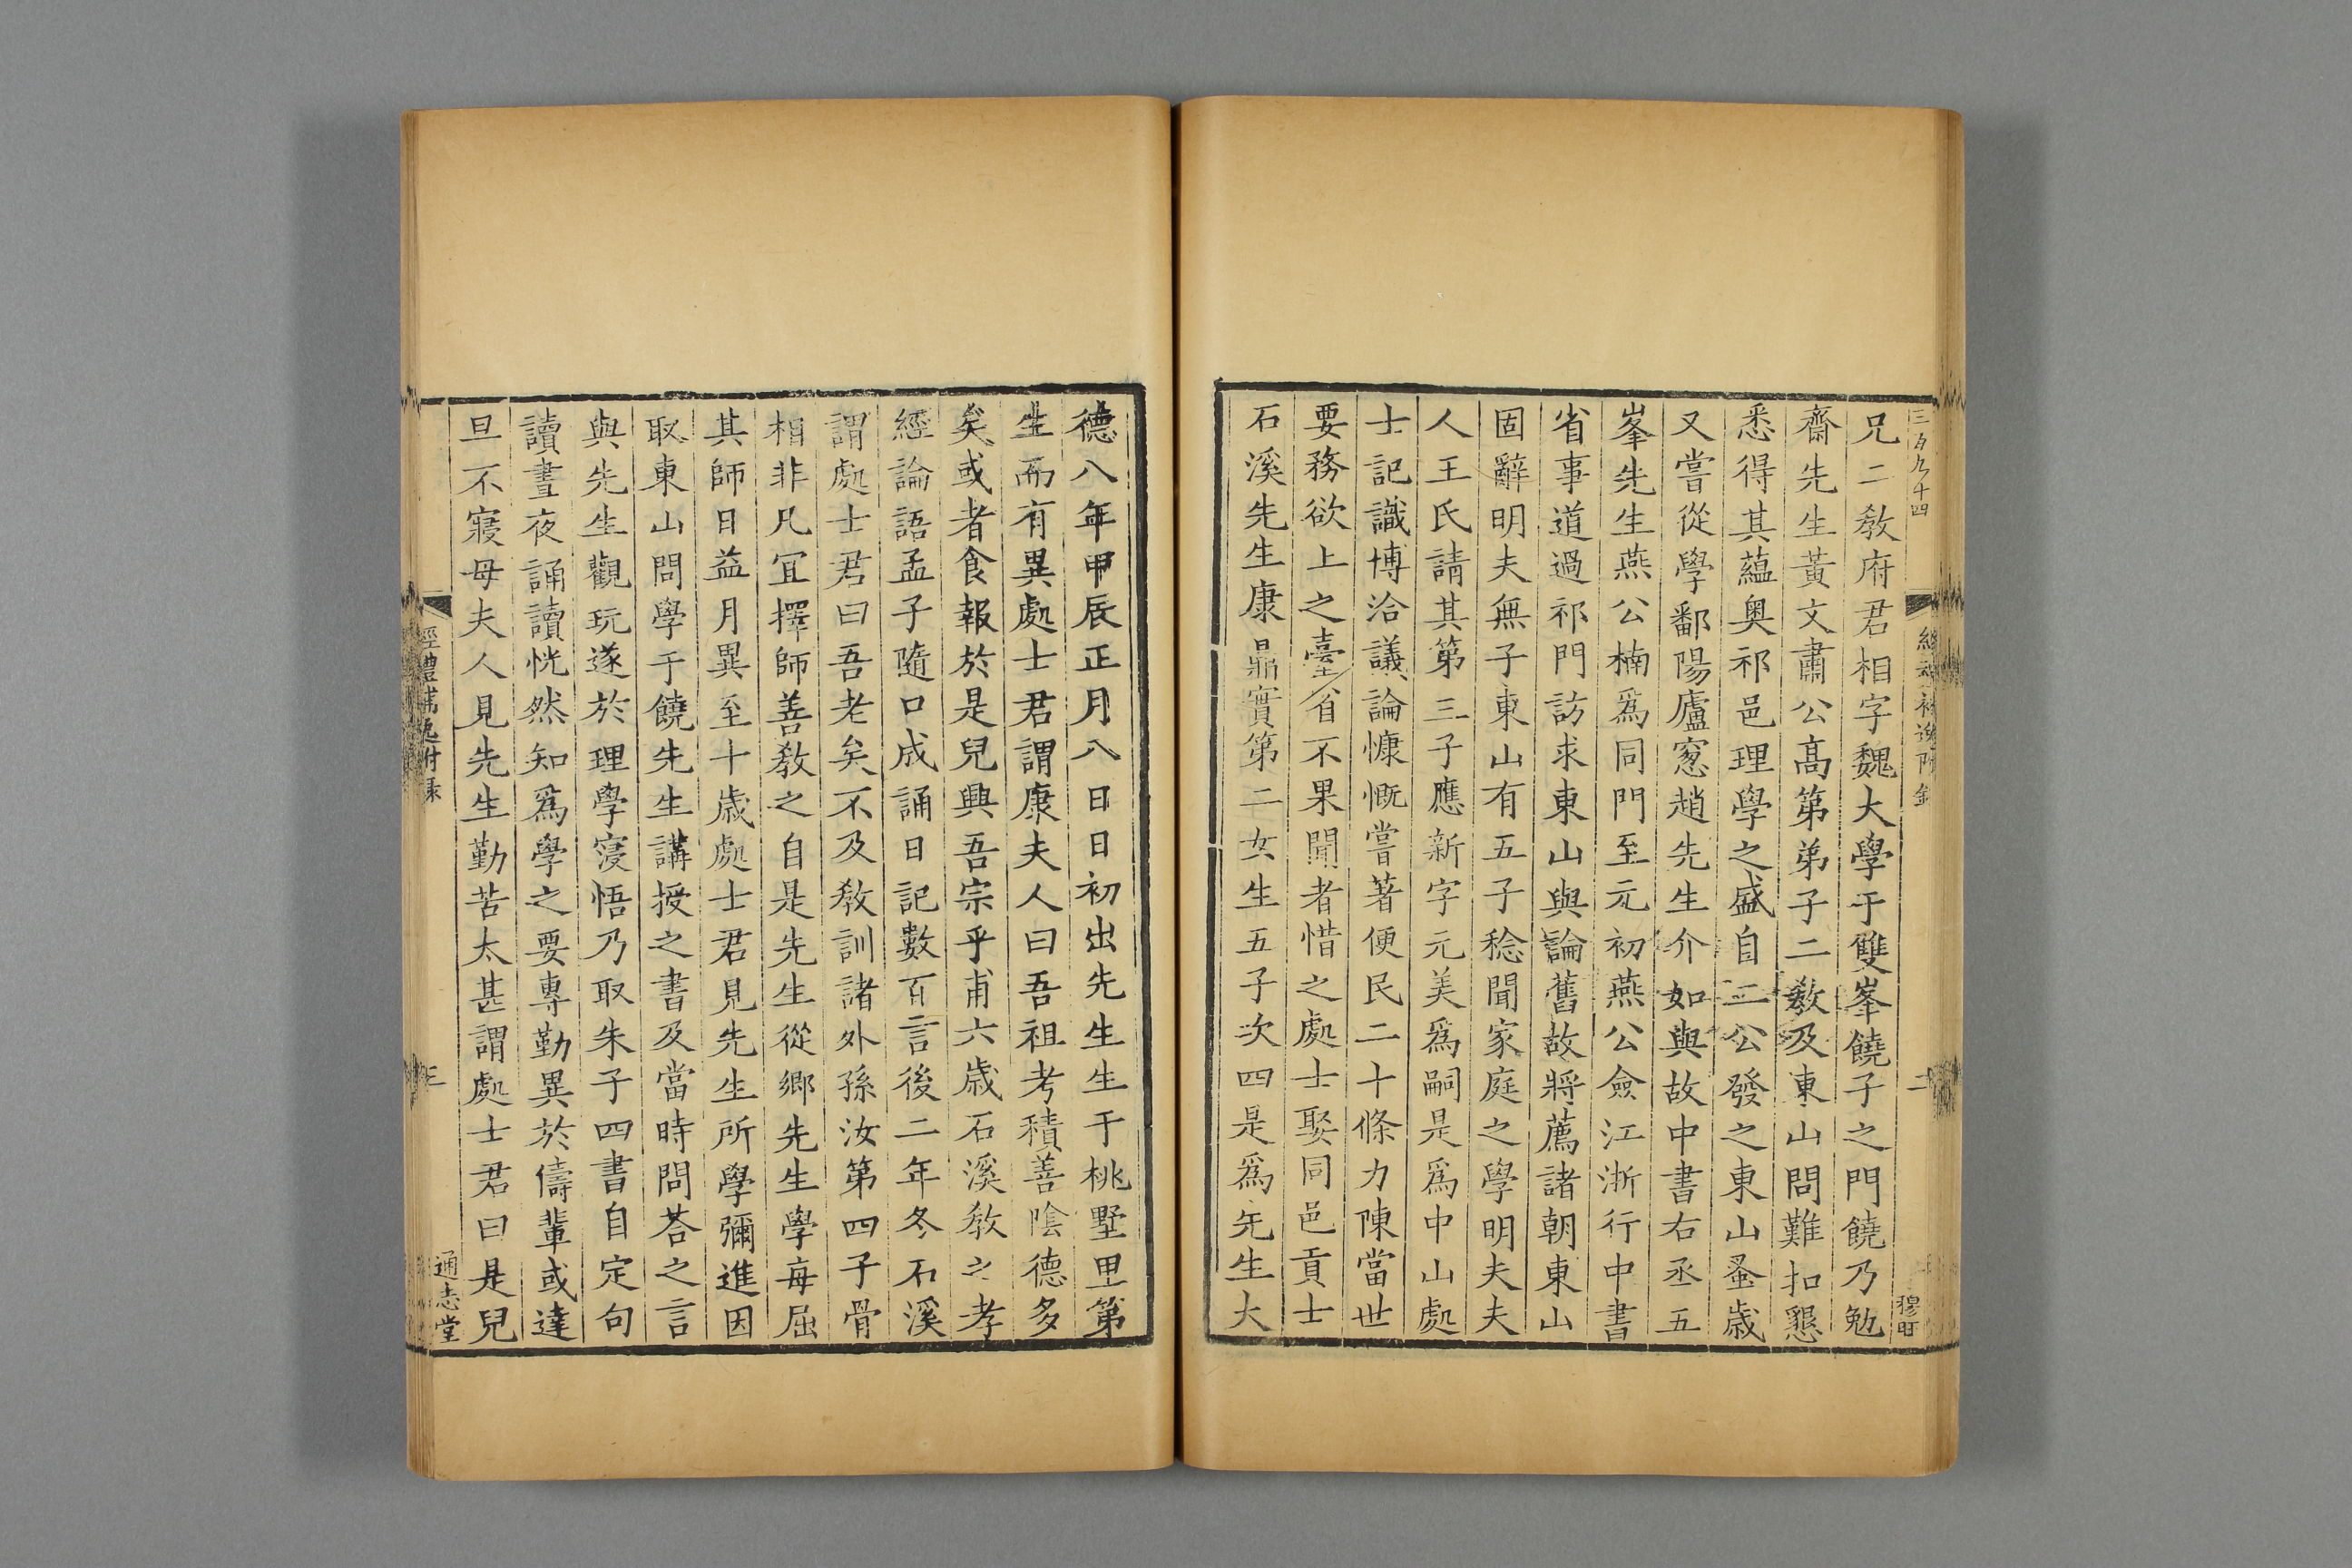 兄二敎府君相字魏大學于雙峯饒子之門饒乃勉
齋先生黃文肅公高第弟子二敎及東山問難扣懇
悉得其蘊奥祁邑理學之盛自二公發之東山蚤歲
又嘗從學鄱陽廬窓趙先生介如與故中書右丞五
峯先生燕公楠爲同門至元初燕公僉江浙行中書
省事道過祁門訪求東山與論舊故將薦諸朝東山
固辭明夫無子東山有五子稔聞家庭之學明夫夫
人王氏請其第三子應新字元美爲嗣是爲中山處
士記識博洽議論慷慨嘗著便民二十條力陳當世
要務欲上之臺省不果聞者惜之處士娶同邑貢士
石溪先生康鼎實第二女生五子次四是爲先生大
德八年甲辰正月八日日初出先生生于桃墅里第
生而有異處士君謂康夫人曰吾祖考積善陰德多
矣或者食報於是兒興吾宗乎甫六歲石溪敎之孝
經論語孟子隨口成誦日記數百言後二年冬石溪
謂處士君曰吾老矣不及敎訓諸外孫汝第四子骨
相非凡宜擇師善敎之自是先生從鄉先生學每屈
其師日益月異至十歲處士君見先生所學彌進因
取東山問學于饒先生講授之書及當時問荅之言
與先生觀玩遂於理學寖悟乃取朱子四書自定句
讀晝夜誦讀恍然知爲學之要專勤異於儔輩或達
旦不寢母夫人見先生勤苦太甚謂處士君曰是兒
經禮補逸附录
三
通志堂